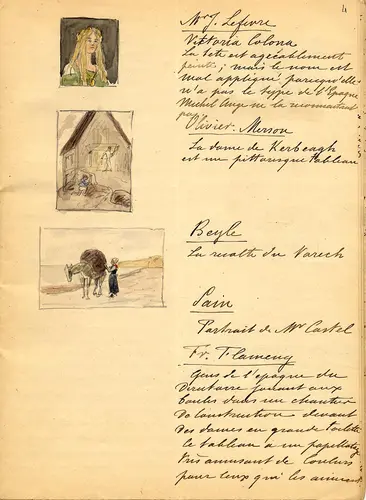 4
Mr J. Lefevre
Vittoria Colona
La tete est agréablement
peinte; mais le nom est
mal appliqué parcequ'elle
n'a pas le type de l'Epoque
Michel Ange ne la reconnaitrait
pas
Olivier-Merson
La dame de Kerbeagh
est un pittoresque tableau
Beyle
La recolte du Varech
Sain
Portrait de Mr Castel
Fr. Flameny
Gens de l'epoque du
Directoire jouant aux
boules dans un chantier
de construction devant
des dames en grande toilette
le tableau a un papillotage
très amusant de couleurs
pour ceux qui les aiment